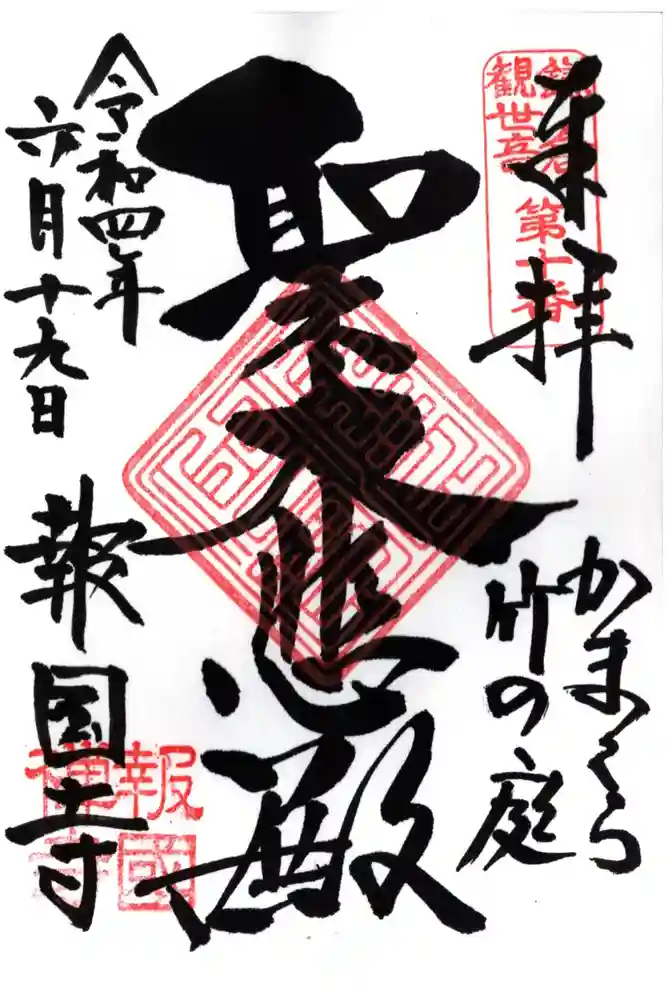 奉拝
鎌倉
観世音
第十番
かまくら
竹の庭
聖大悲殿
令和四年
六月十九日
報国寺
報國
禅寺